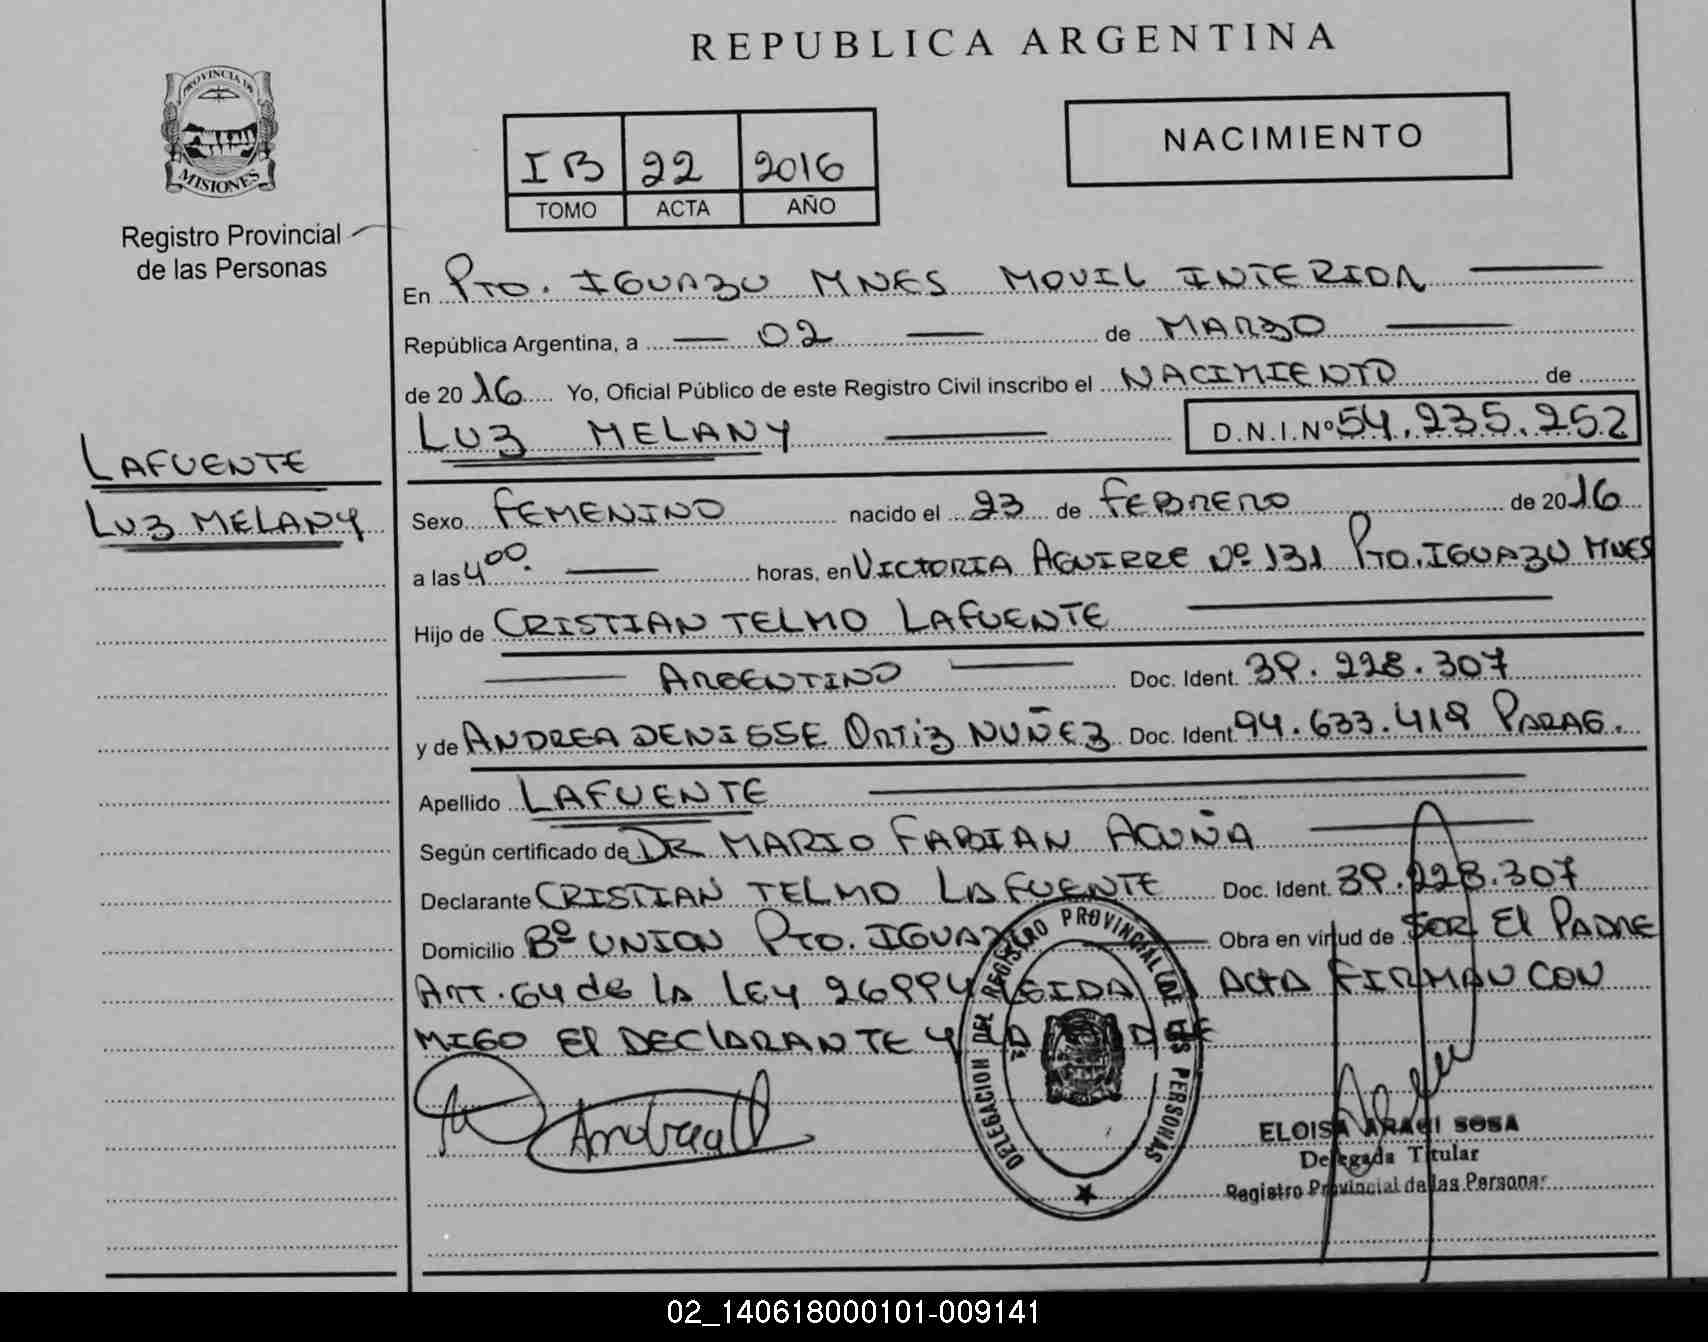 REPUBLICA ARGENTINA
PROVINCIA DE
MISIONES
Registro Provincial
de las Personas
IB 22 2016
TOMO ACTA AÑO
NACIMIENTO
En Pto. IGUAZU MNES MOVIL INTERIDA
República Argentina, a 02 de MARZO
de 2016 Yo, Oficial Público de este Registro Civil inscribo el NACIMIENTO de
LUZ MELANY D.N.I.Nº 54.235.252
LAFUENTE
LUZ MELANY
Sexo FEMENINO nacido el 23 de FEBRERO de 2016
a las 400. horas, en VICTORIA AGUIRRE Nº 131 Pto. IGUAZU MNES
Hijo de CRISTIAN TELMO LAFUENTE
ARGENTINO Doc. Ident. 39.228.307
y de ANDREA DENISSE ORTIZ NUÑEZ Doc. Ident. 94.633.419 PARAG.
Apellido LAFUENTE
Según certificado de DR MARIO FABIAN ACUÑA
Declarante CRISTIAN TELMO LAFUENTE Doc. Ident. 39.228.307
Domicilio Bº UNION Pto. Obra en virtud de SER El PADRE
Art. 64 de LA LEY 26994 ACTA FIRMAN CON
MIGO El DECLARANTE Y LA
DELEGACION DEL REGISTRO PROVINCIAL DE LAS PERSONAS
ELOISA ARACI SOSA
Delegada Titular
Registro Provincial de las Personas
02_140618000101-009141